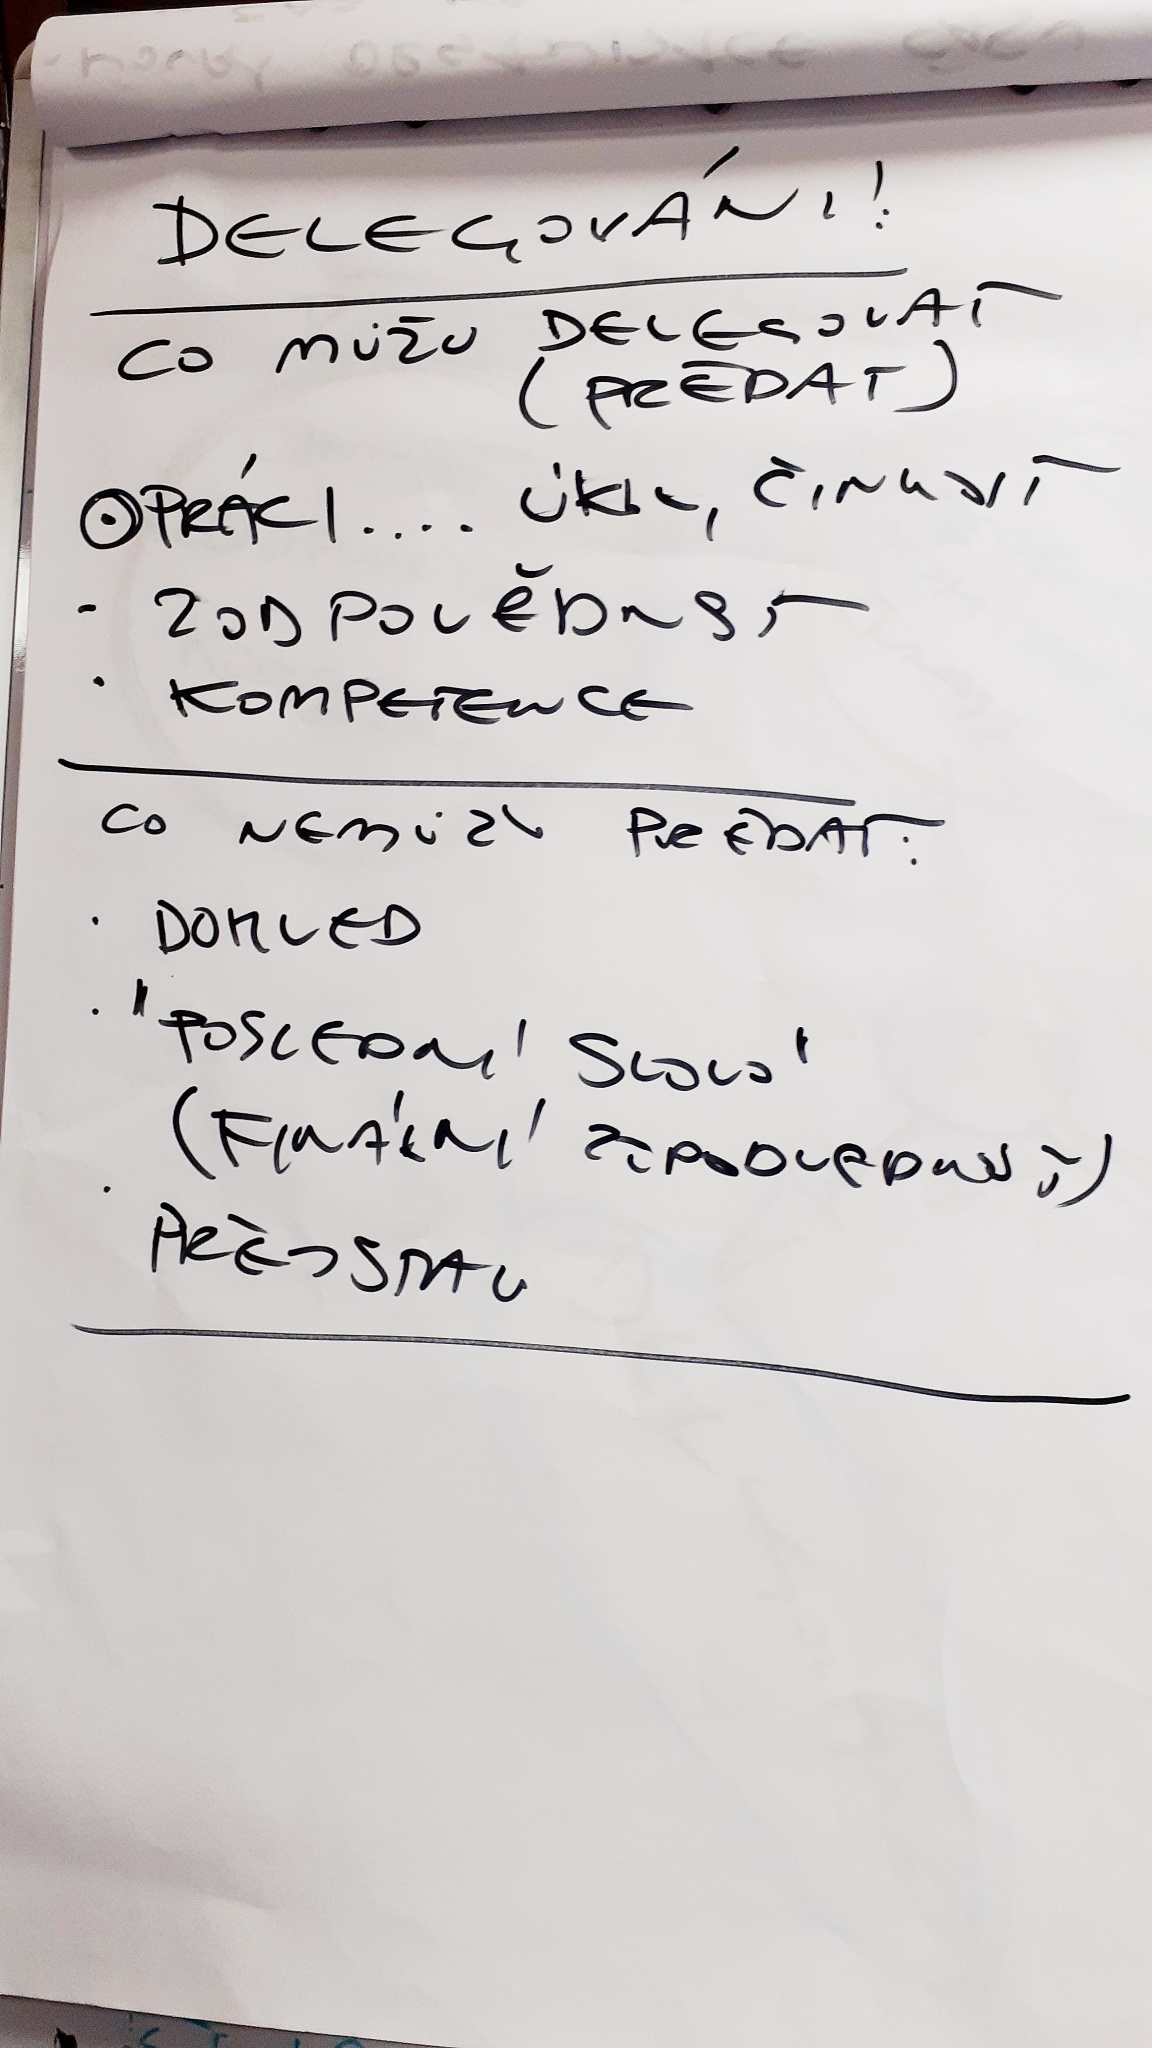 DELEGOVÁNÍ!
CO MŮŽU DELEGOVAT
(PŘEDAT)
PRÁCI.... ÚKOL, ČINNOST
- ZODPOVĚDNOST
· KOMPETENCE
CO NEMŮŽU PŘEDAT:
· DOHLED
· "POSLEDNÍ SLOVO"
(FINÁLNÍ ZODPOVĚDNOST)
· PŘEDSTAV